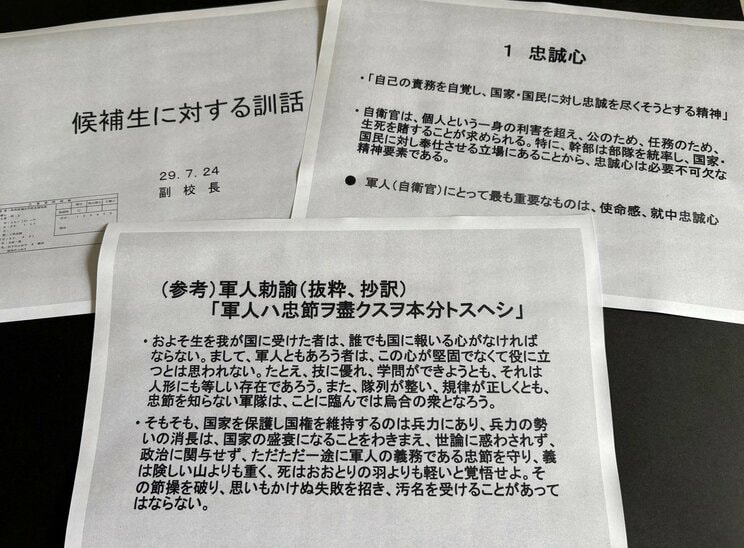 候補生に対する訓話
29.7.24
副 校 長
1 忠誠心
・「自己の責務を自覚し、国家・国民に対し忠誠を尽くそうとする精神」
・自衛官は、個人という一身の利害を超え、公のため、任務のため、
生死を賭することが求められる。特に、幹部は部隊を統率し、国家・
国民に対し奉仕させる立場にあることから、忠誠心は必要不可欠な
精神要素である。
● 軍人(自衛官)にとって最も重要なものは、使命感、就中忠誠心
(参考)軍人勅諭(抜粋、抄訳)
「軍人ハ忠節ヲ盡クスヲ本分トスヘシ」
・おおよそ生を我が国に受けた者は、誰でも国に報いる心がなければ
ならない。まして、軍人ともあろう者は、この心が堅固でなくて役に立
つとは思われない。たとえ、技に優れ、学問ができようとも、それは
人形にも等しい存在であろう。また、隊列が整い、規律が正しくとも、
忠節を知らない軍隊は、ことに臨んでは烏合の衆となろう。
・そもそも、国家を保護し国権を維持するのは兵力にあり、兵力の勢
いの消長は、国家の盛衰になることをわきまえ、世論に惑わされず、
政治に関与せず、ただただ一途に軍人の義務である忠節を守り、義
は険しい山よりも重く、死はおおとりの羽よりも軽いと覚悟せよ。そ
の節操を破り、思いもかけぬ失敗を招き、汚名を受けることがあって
はならない。